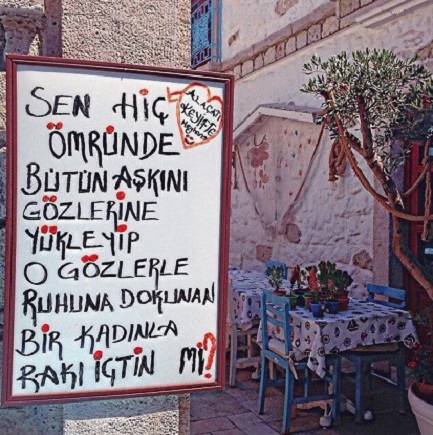 SEN HİÇ
ÖMRÜNDE
BÜTÜN AŞKINI
GÖZLERİNE
YÜKLEYİP
O GÖZLERLE
RUHUNA DOKUNAN
BİR KADINLA
RAKI İÇTİN Mİ?
ALAÇATI
KEYİFTE